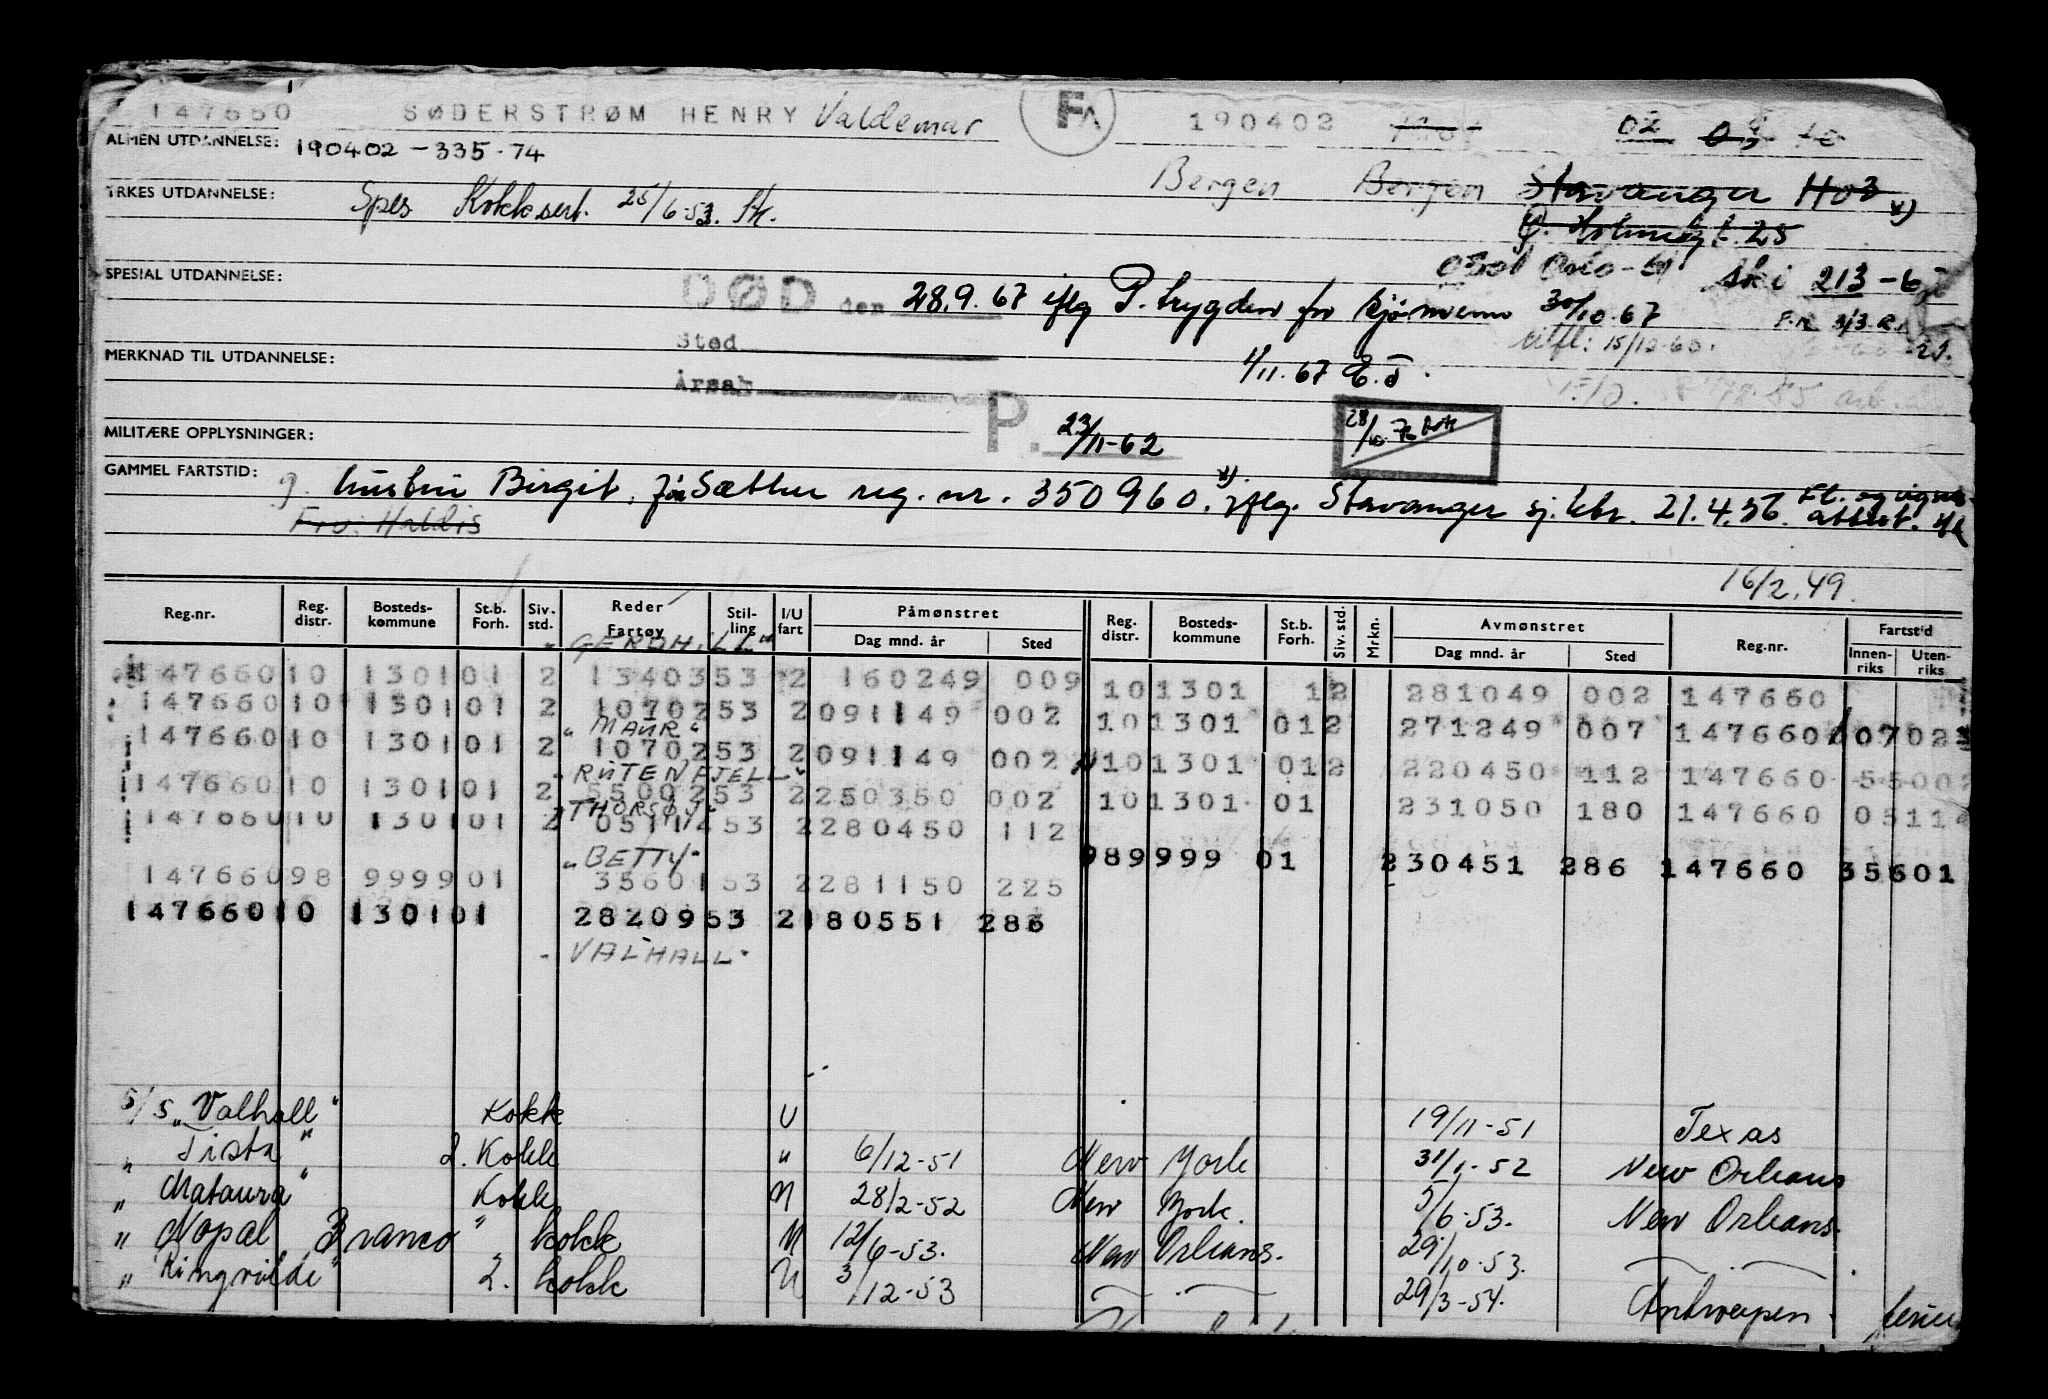 147660 SØDERSTRØM HENRY Valdemar FA 190402 02
ALMEN UTDANNELSE: 190402-335.74
Bergen Bergen Stavanger Ho3 x)
YRKES UTDANNELSE: Spes Kokksert. 25/6-53.
0301 Oslo-51 ski 213-
SPESIAL UTDANNELSE:
DØD den 28.9.67 iflg P. trygden for sjømenn 30/10.67
Sted utfl: 15/12-60.
MERKNAD TIL UTDANNELSE: 1/11.67 E.J.
Årsak
P. 23/11-62
MILITÆRE OPPLYSNINGER:
GAMMEL FARTSTID: g. hustru Birgit, før Sæther reg. nr. 350960. x) iflg. Stavanger sj. ktr. 21.4.56.
Fru: Haldis
16/2.49.
Reg.nr. Reg. distr. Bosteds-kommune St.b. Forh. Siv. std. Reder Fartøy Stil-ling I/U fart Påmønstret Dag mnd. år Sted Reg. distr. Bosteds-kommune St.b. Forh. Siv. std. Mrkn. Avmønstret Dag mnd. år Sted Reg.nr. Fartstid Innen-riks Uten-riks
"GERDHILL"
147660 10 1301 01 2 13403 53 2 160249 009 10 1301 1 2 281049 002 147660
147660 10 1301 01 2 10702 53 2 091149 002 10 1301 01 2 271249 007 147660 07023
"MAUR"
147660 10 1301 01 2 10702 53 2 091149 002 10 1301 01 2 220450 112 147660 55002
"RUTENFJELL"
147660 10 1301 01 2 55002 53 2 250350 002 10 1301 01 231050 180 147660 05114
"THORSØY"
147660 10 1301 01 2 05114 53 2 280450 112
"BETTY" 98 9999 01 230451 286 147660 35601
147660 98 9999 01 35601 53 2 281150 225
147660 10 1301 01 28209 53 2 180551 286
"VALHALL"
S/S "Valhall" Kokk U 19/11-51 Texas
" Tista" 2. Kokk " 6/12-51 New York 31/1-52 New Orleans
" Mataura" Kokk U 28/2-52 New York. 5/6-53. New Orleans.
" Nopal Branco" kokk U 12/6-53. New Orleans. 29/10-53.
" Ringulde" 2. kokk U 3/12-53 29/3-54. Antwerpen. ferie